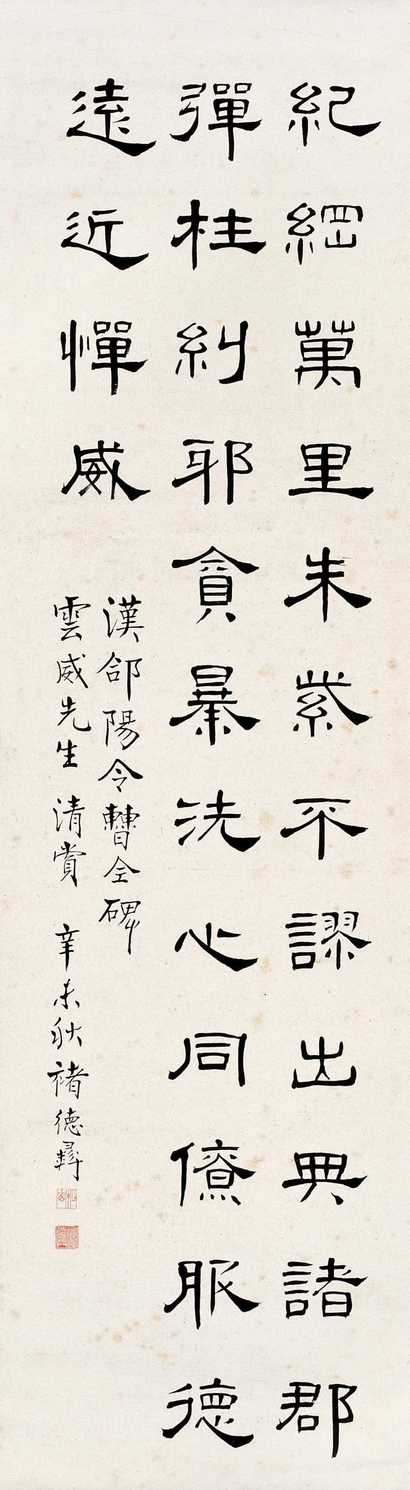 紀綱萬里朱紫不謬出典諸郡
彈枉糾邪貪暴洗心同僚服德
遠近憚威
漢郃陽令曹全碑
雲威先生清賞 辛未秋褚德彝